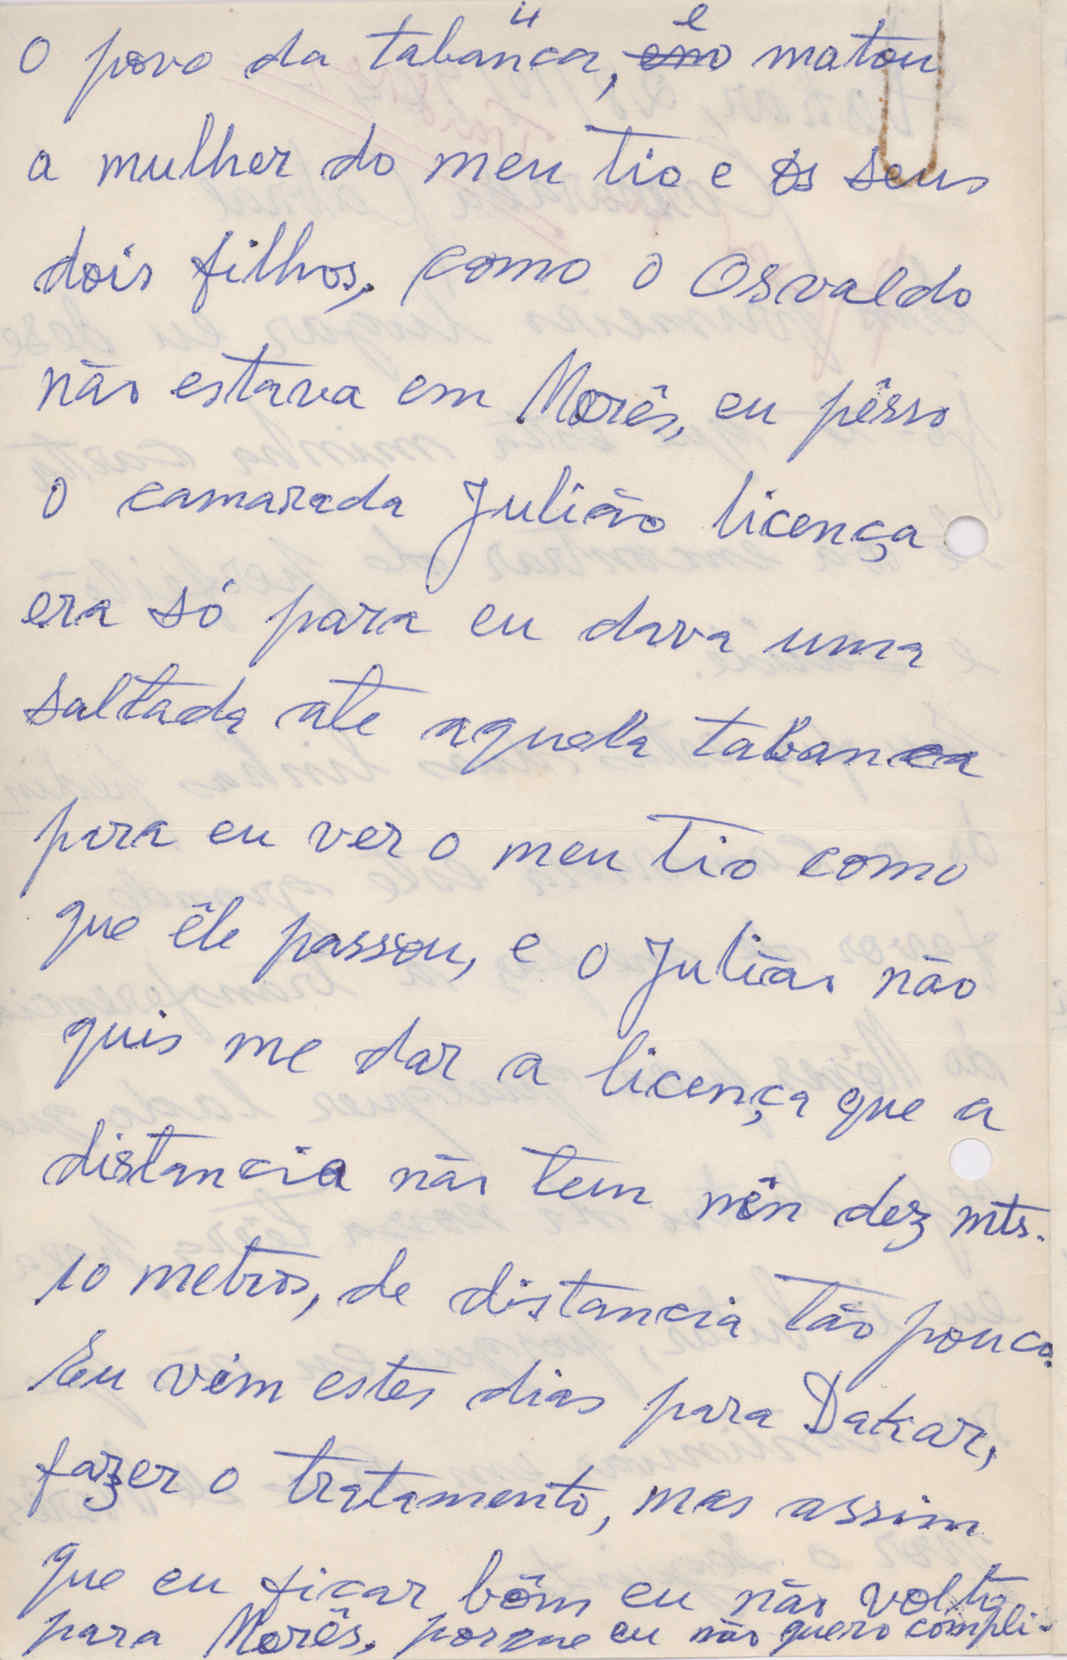 O povo da tabanca, e matou
a mulher do meu tio e os seus
dois filhos, como o Osvaldo
não estava em Morês, eu pêsso
o camarada Julião licença
era só para eu dava uma
saltada ate aquela tabanca
para eu ver o meu tio como
que êle passou, e o Julião não
quis me dar a licença que a
distancia não tem nên dez mts.
10 metros, de distancia tão pouca.
Eu vim estes dias para Dakar,
fazer o tratamento, mas assim
que eu ficar bôm eu não volto
para Morês, porque eu não quero compli-